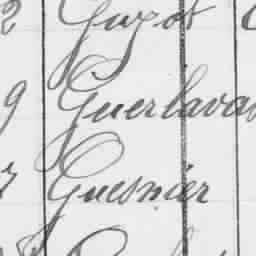 2 Guyot
9 Guerlavas
7 Guesnier